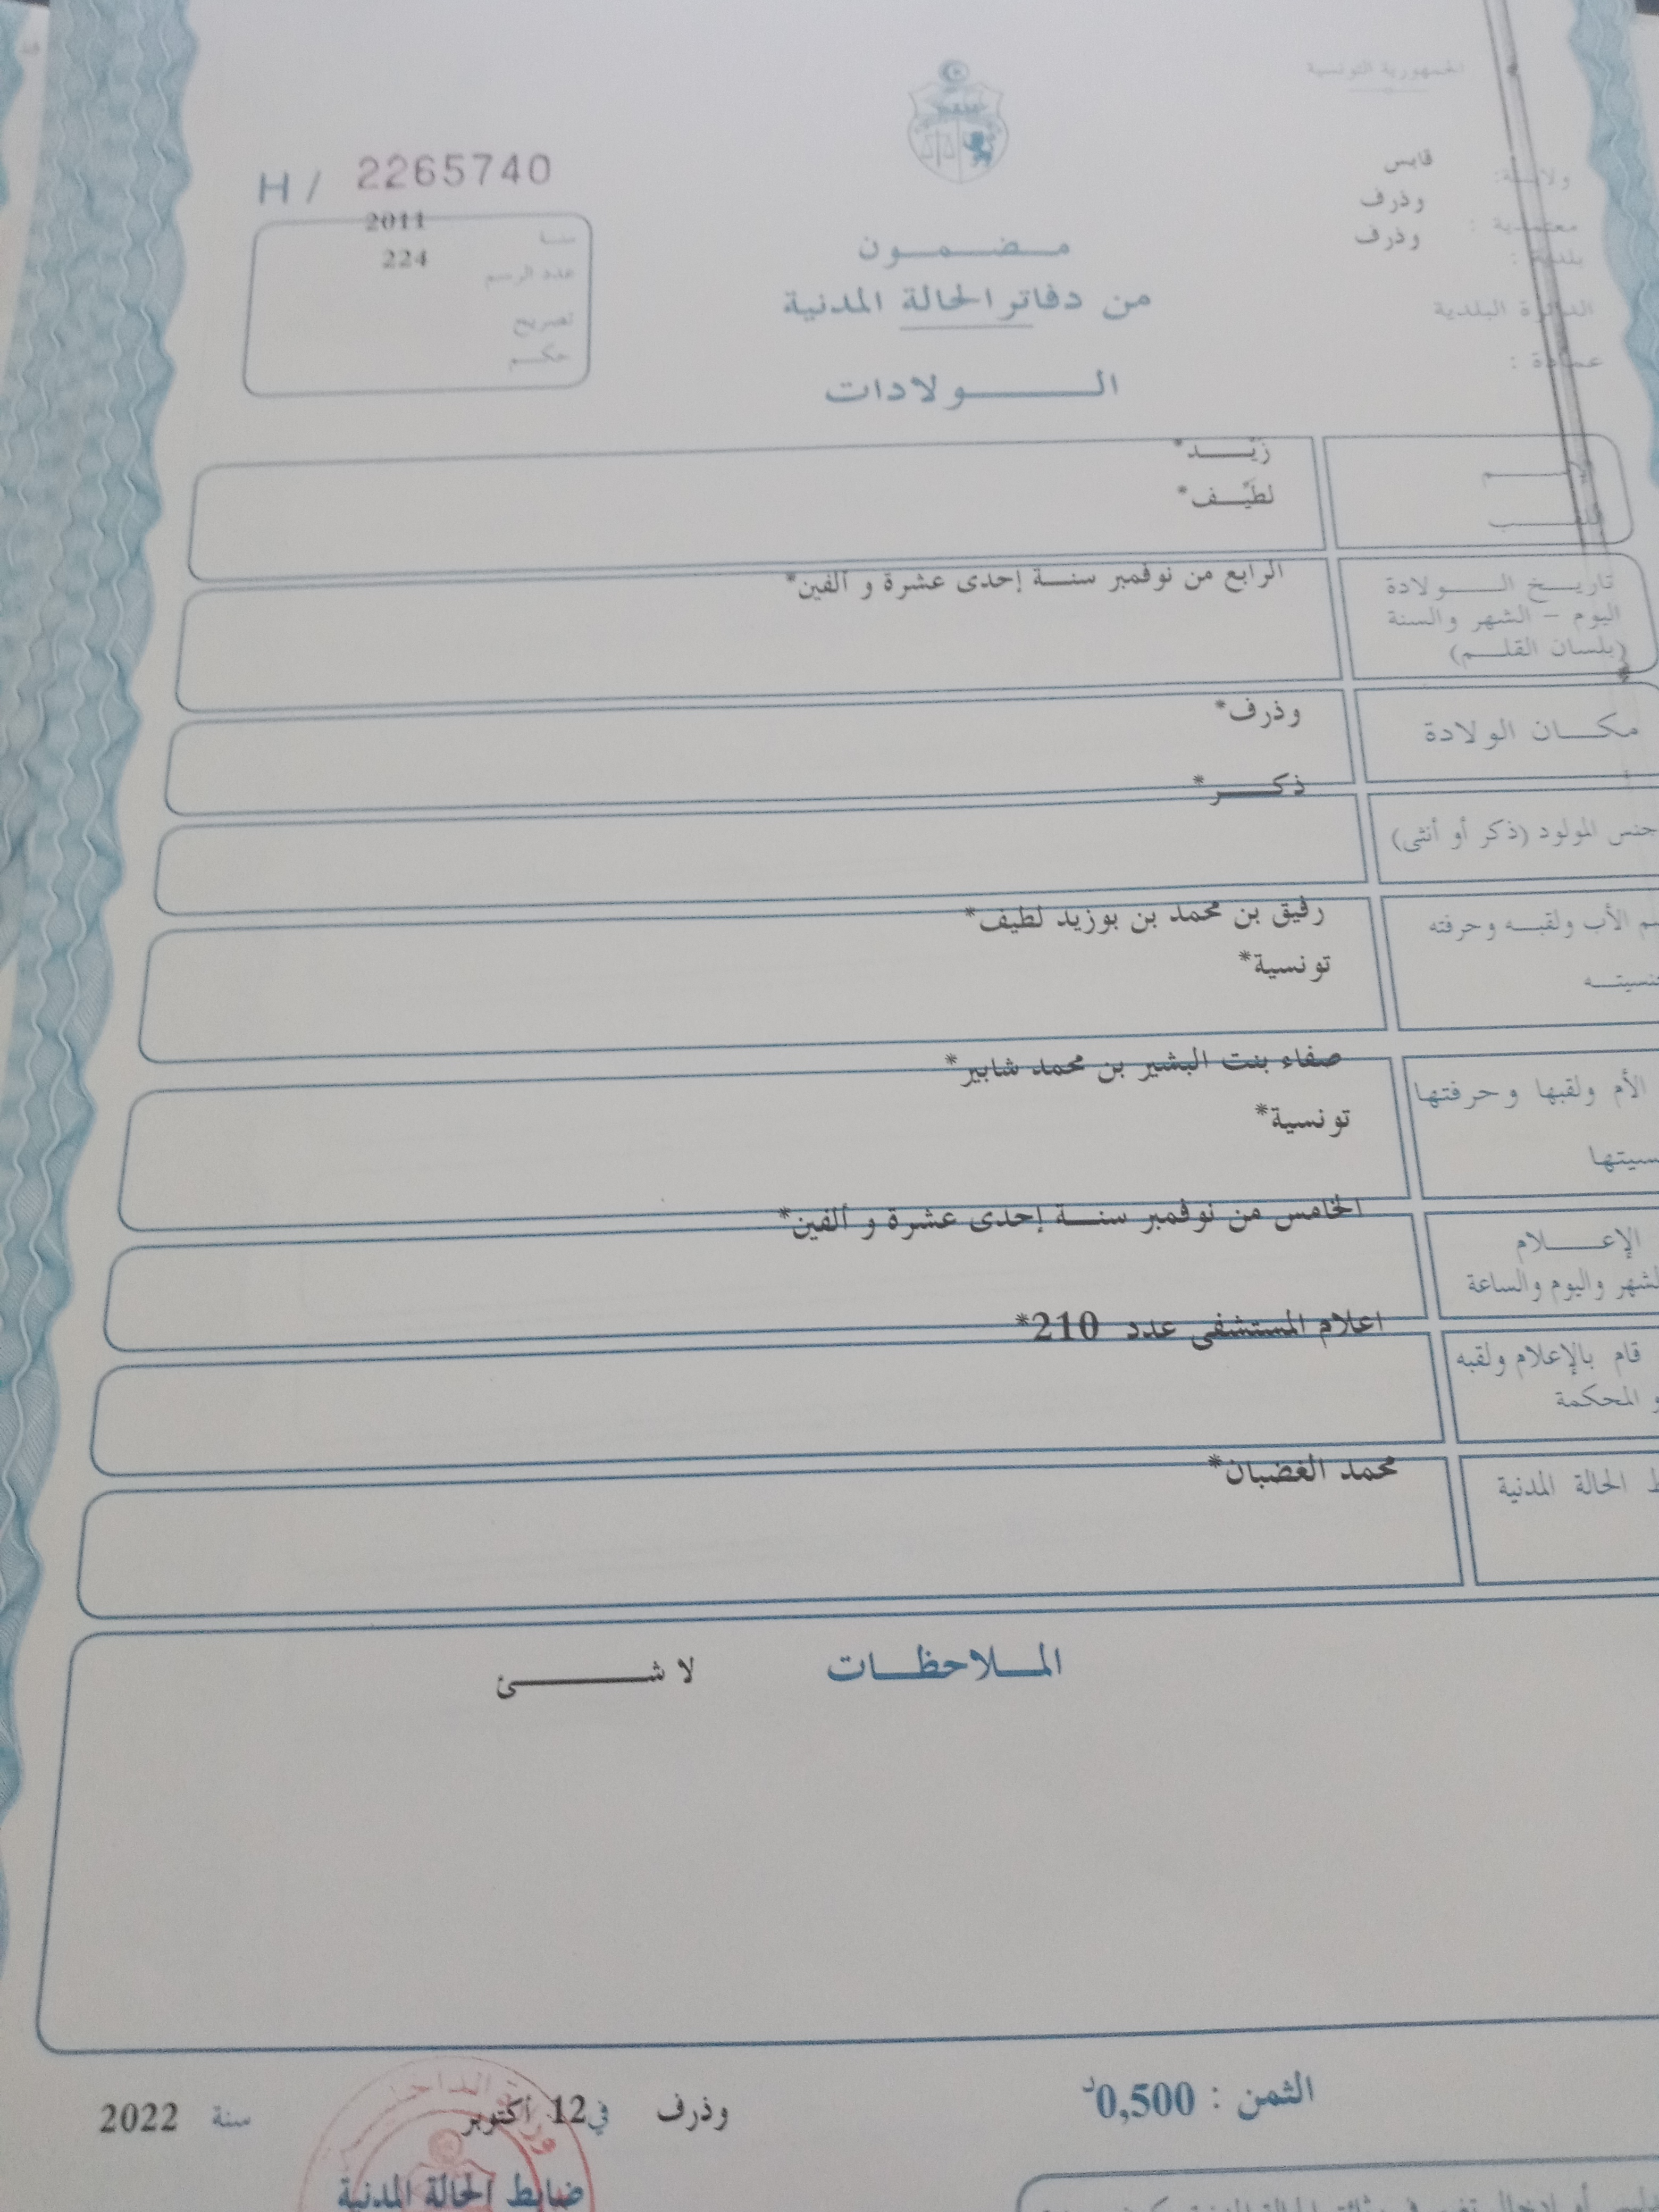 الجمهورية التونسية
ولاية: قابس
معتمدية : وذرف
بلدية : وذرف
الدائرة البلدية
عمادة :
H / 2265740
2011
عدد الرسم 224
تصريح
حكم
مضمون
من دفاتر الحالة المدنية
الولادات
زيد*
لطيف*
تاريخ الولادة
اليوم – الشهر والسنة
(بلسان القلم)
الرابع من نوفمبر سنة إحدى عشرة و الفين*
مكان الولادة
وذرف*
جنس المولود (ذكر أو أنثى)
ذكر*
الأب ولقبه وحرفته
رفيق بن محمد بن بوزيد لطيف*
تونسية*
الأم ولقبها وحرفتها
صفاء بنت البشير بن محمد شابير*
تونسية*
الإعلام
الشهر واليوم والساعة
الخامس من نوفمبر سنة إحدى عشرة و الفين*
قام بالإعلام ولقبه
و المحكمة
اعلام المستشفى عدد 210*
الحالة المدنية
محمد الغضبان*
الملاحظات لا شئ
الثمن : 0,500د
وذرف في 12 أكتوبر سنة 2022
ضابط الحالة المدنية